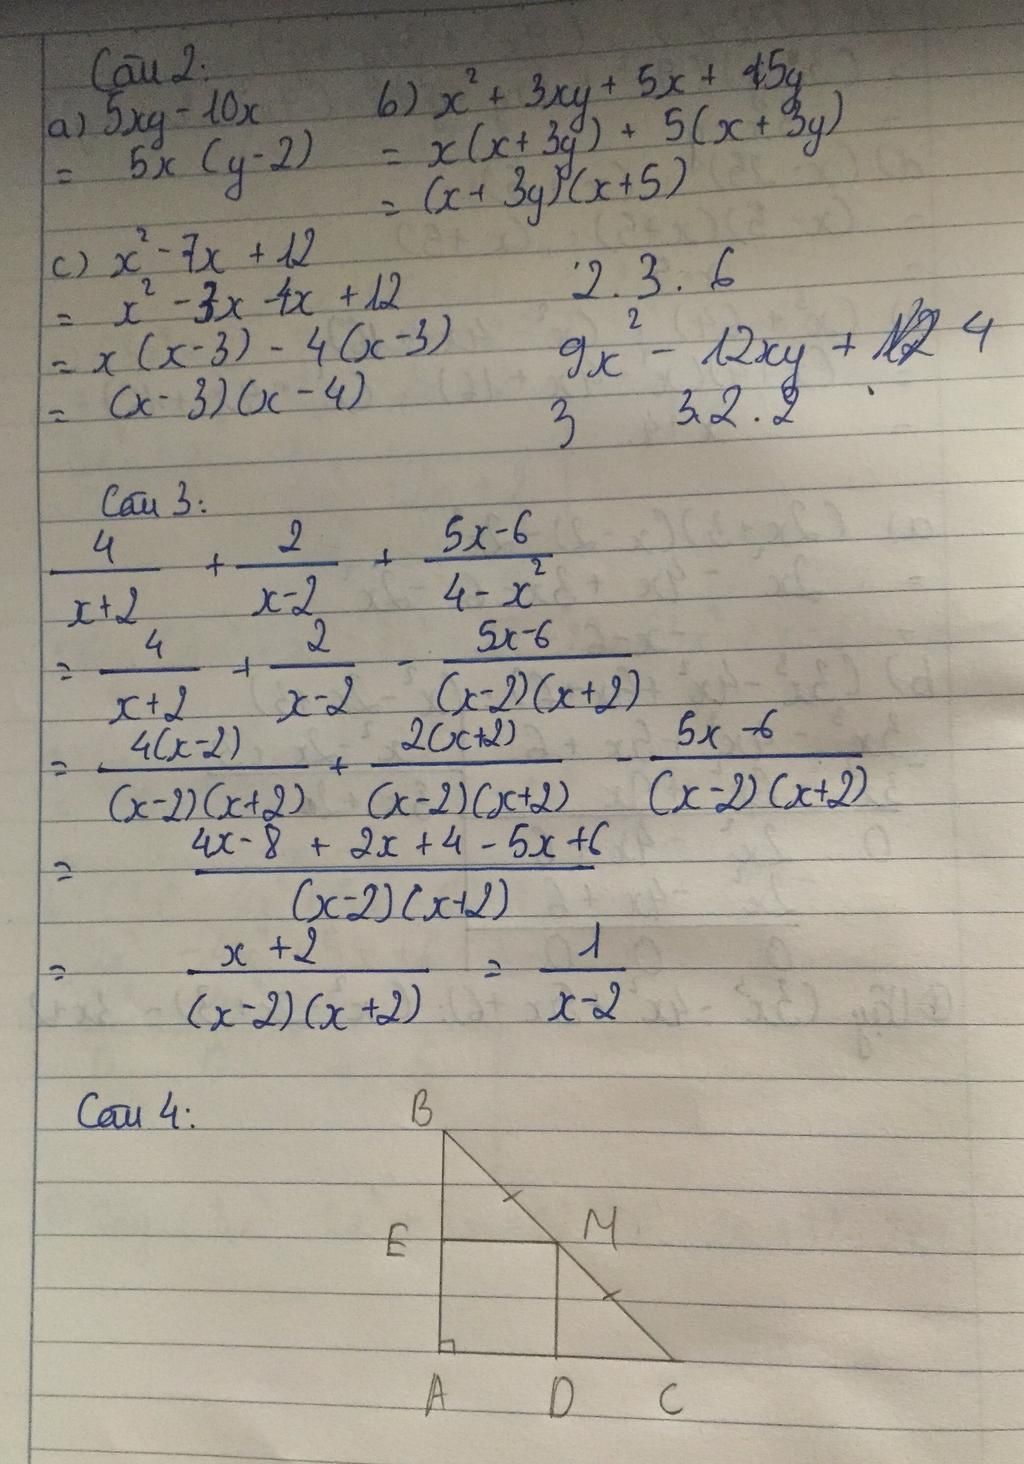 Câu 2:
a) 5xy - 10x
= 5x (y-2)
b) x² + 3xy + 5x + 15y
= x(x+3y) + 5(x+3y)
= (x+3y)(x+5)
c) x² - 7x + 12
= x² - 3x - 4x + 12
= x(x-3) - 4(x-3)
= (x-3)(x-4)
2.3.6
9x² - 12xy + 4
3 3.2.2
Câu 3:
4/(x+2) + 2/(x-2) + (5x-6)/(4-x²)
= 4/(x+2) + 2/(x-2) - (5x-6)/((x-2)(x+2))
= 4(x-2)/((x-2)(x+2)) + 2(x+2)/((x-2)(x+2)) - (5x-6)/((x-2)(x+2))
= (4x-8+2x+4-5x+6)/((x-2)(x+2))
= (x+2)/((x-2)(x+2)) = 1/(x-2)
Câu 4:
B
E M
A D C